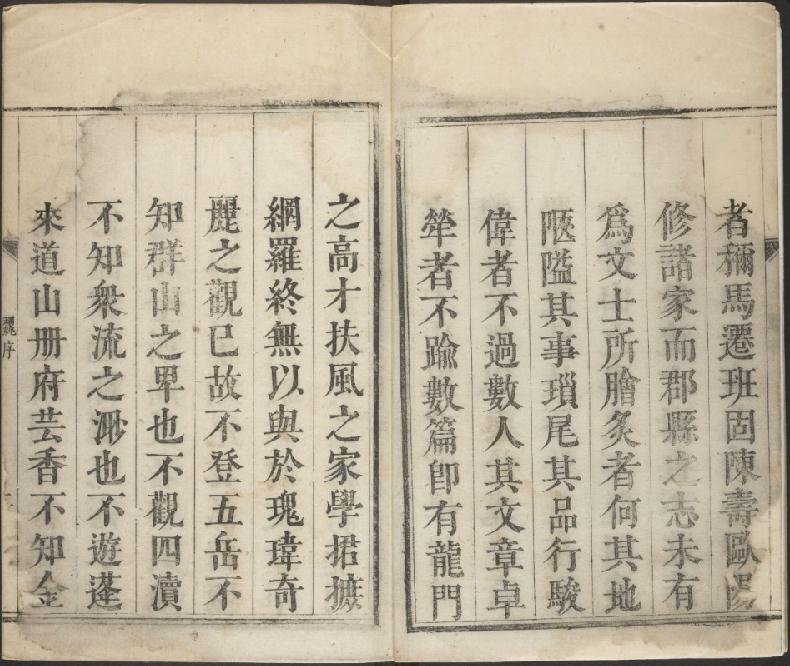 者稱馬遷班固陳壽歐陽
修諸家而郡縣之志未有
爲文士所膾炙者何其地
陿隘其事瑣尾其品行駿
偉者不過數人其文章卓
犖者不踰數篇卽有龍門
之高才扶風之家學捃摭
網羅終無以與於瑰瑋奇
麗之觀已故不登五岳不
知群山之卑也不觀四瀆
不知衆流之渺也不遊蓬
來道山冊府芸香不知金
魏序